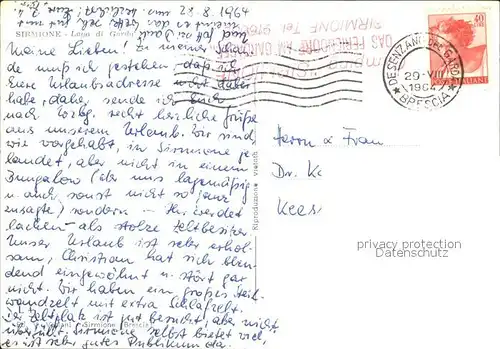 SIRMIONE - Lago di Garda
Meine Lieben! Zu meiner Schan-
de muß ich gestehen daß ich
Eure Urlaubsadresse nicht dabei
habe, daher sende ich Euch
nach Wzbg. recht herzliche Grüße
aus unserem Urlaub. Wir sind
wie vorgehabt, in Sirmione ge-
landet, aber nicht in einem
Bungalow (der uns lagemäßig
u. auch sonst nicht so ganz
zusagte) sondern - Ihr werdet
lachen - als stolze Zeltbesitzer.
Unser Urlaub ist sehr erhol-
sam, Christian hat sich blen-
dend eingewöhnt u. stört gar
nicht. Wir haben ein großes Steil-
wandzelt mit extra Schlafzelt.
Der Zeltplatz ist gut besucht, aber nicht
überfüllt. Sirmione selbst bietet viel,
es ist sehr gutes Publikum da.
Sirmione (Brescia)
Riproduzione vietata
SIRMIONE Tel. 9160
DESENZANO DEL GARDA
20-VIII
1964
BRESCIA
40
POSTE ITALIANE
Herrn u Frau
Dr. K
Kees
privacy protection
Datenschutz